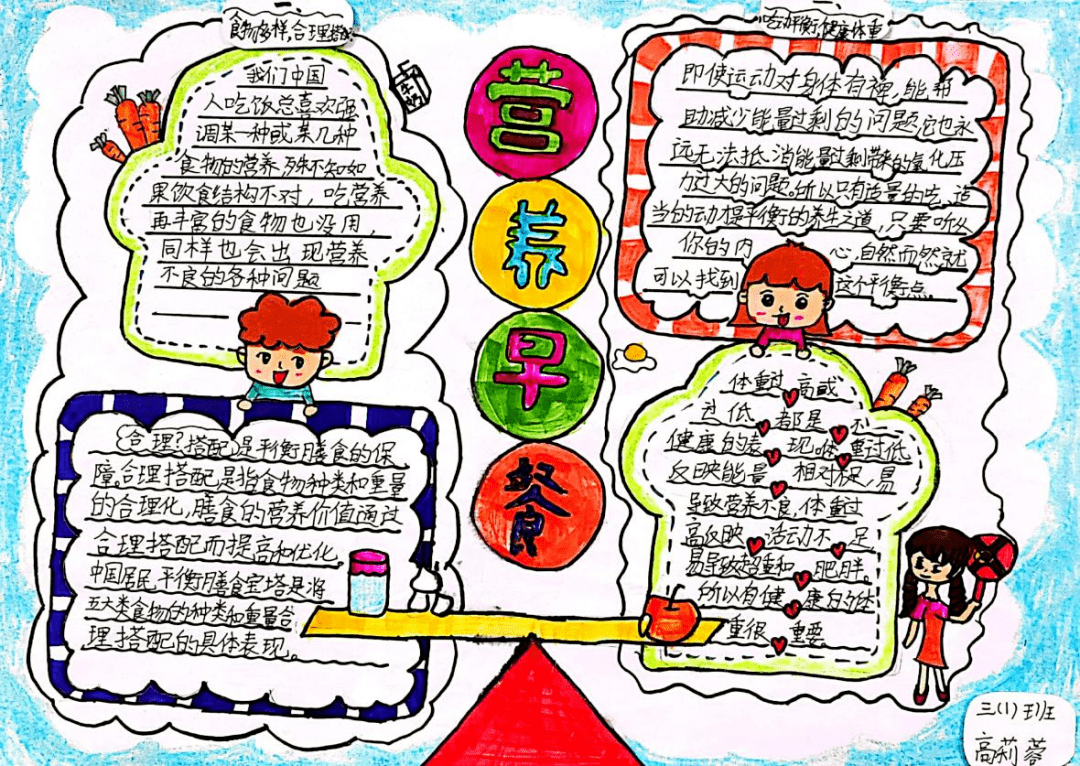 食物多样,合理搭配
我们中国
人吃饭总喜欢强
调某一种或某几种
食物的营养,殊不知如
果饮食结构不对，吃营养
再丰富的食物也没用，
同样也会出现营养
不良的各种问题
合理搭配是平衡膳食的保
障。合理搭配是指食物种类和重量
的合理化,膳食的营养价值通过
合理搭配而提高和优化。
中国居民平衡膳食宝塔是将
五大类食物的种类和重量合
理搭配的具体表现。
营
养
早
餐
吃动平衡,健康体重
即使运动对身体有裨,能帮
助减少能量过剩的问题,它也永
远无法抵消能量过剩带来的氧化压
力过大的问题。所以只有适量的吃、适
当的动才是平衡的养生之道,只要听从
你的内心,自然而然就
可以找到这个平衡点。
体重过高或
过低都是不
健康的表现喉重过低
反映能量相对不足,易
导致营养不良,体重过
高反映活动不足
易导致超重和肥胖。
所以有健康的体
重很重要
三(1)班
高莉蓉